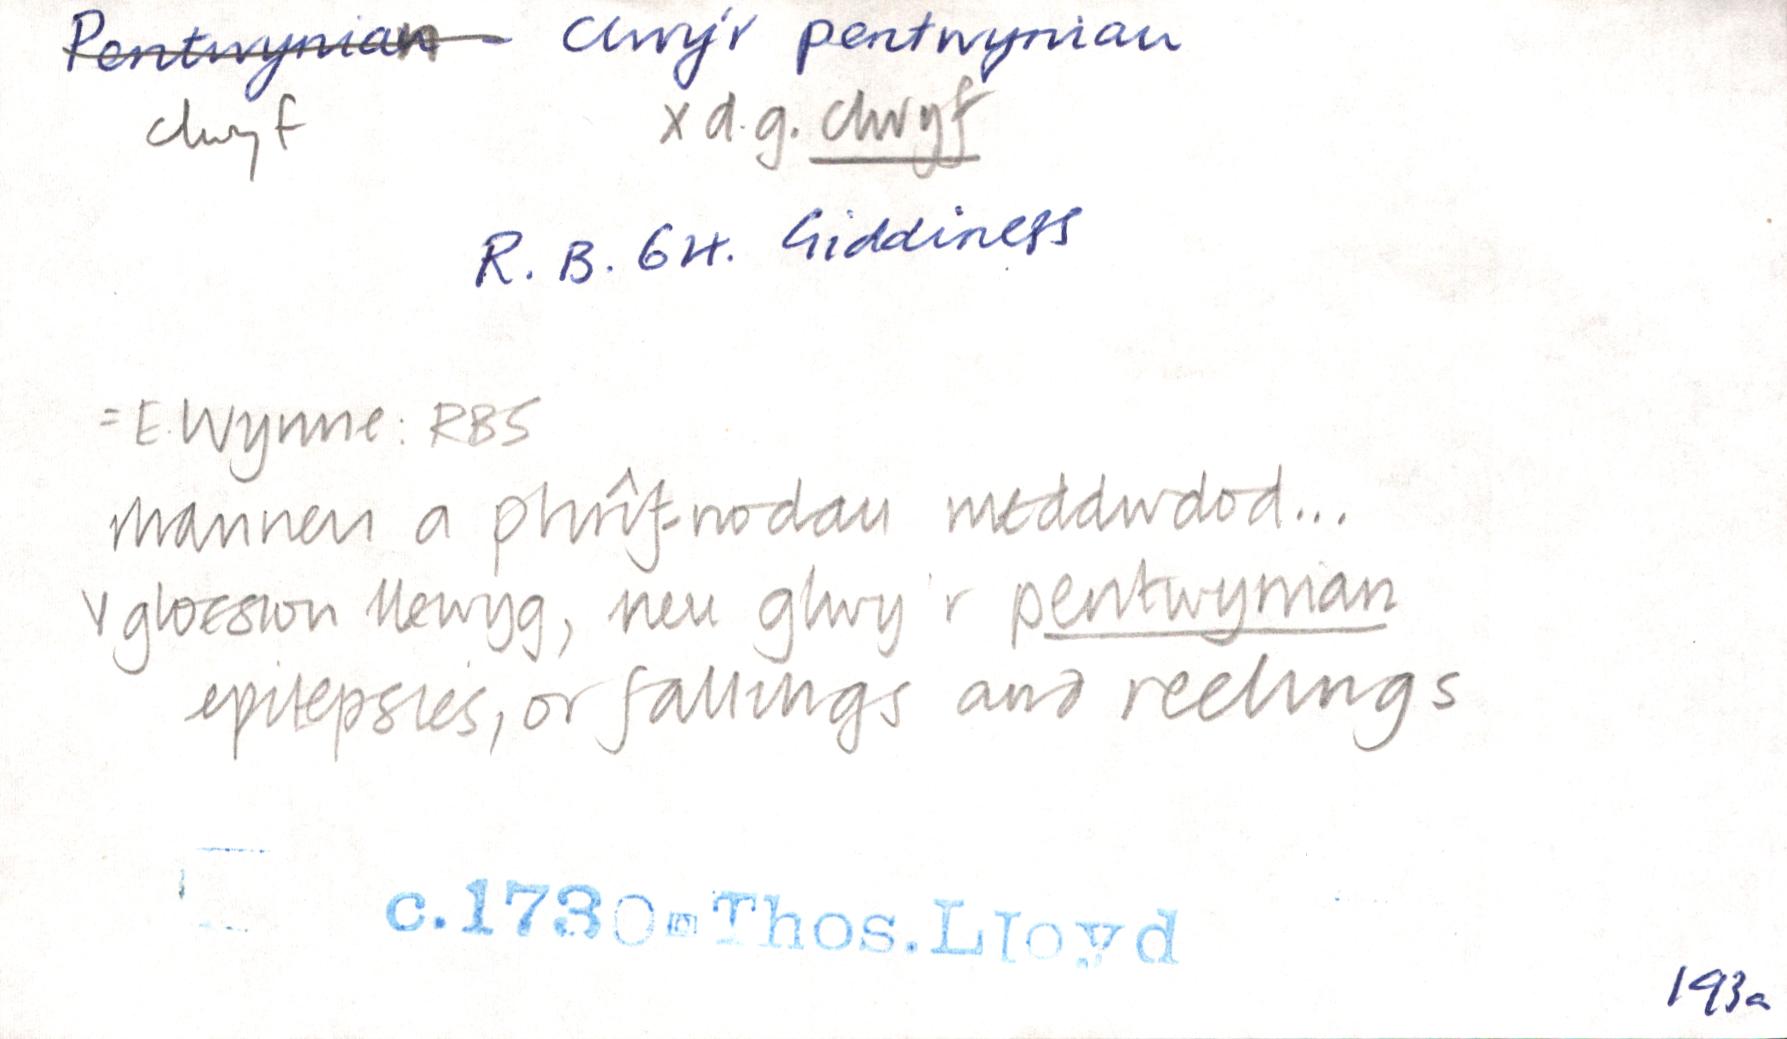 Pentwynian - clwy'r pentwynian
clwyf x d.g. clwyf
R. B. 64. Giddiness
= E. Wynne: RBS
mannen a phrîf-nodau meddwdod...
y gloesion llewyg, neu glwy'r pentwynian
epilepsies, or fallings and reelings
c.1730 Thos.Lloyd
193a